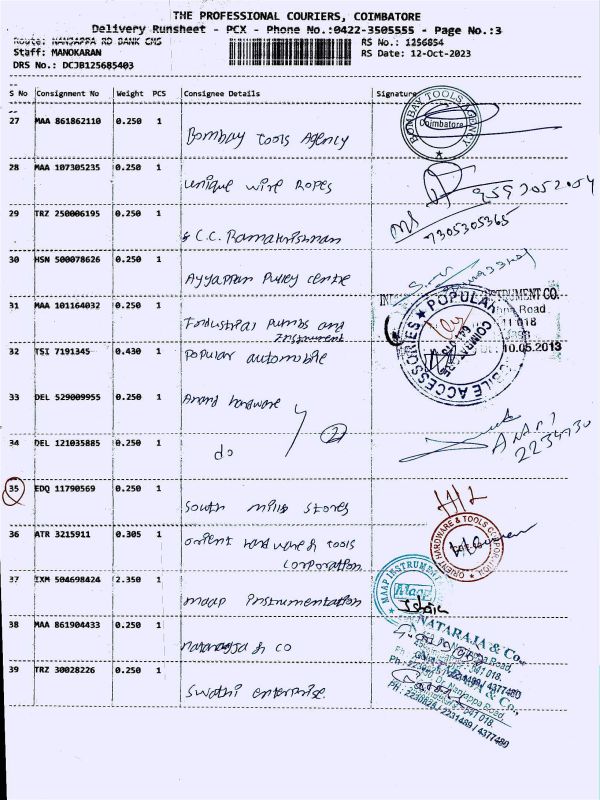 THE PROFESSIONAL COURIERS, COIMBATORE
Delivery Runsheet - PCX - Phone No.:0422-3505555 - Page No.:3
Route: NANJAPPA RD BANK CMS
RS No.: 1256854
Staff: MANOKARAN
RS Date: 12-Oct-2023
DRS No.: DCJB125685403
S No Consignment No Weight PCS Consignee Details Signature
27 MAA 861862110 0.250 1
Bombay tools Agency
BOMBAY TOOLS AGENCY
Coimbatore
28 MAA 107305235 0.250 1
unique wire Ropes
9597052054
29 TRZ 250006195 0.250 1
C.C. Ramakrishnan
7305305365
30 HSN 500078626 0.250 1
Ayyappan Pulley centre
31 MAA 101164032 0.250 1
Industrial Pumbs and
Instrument
INSTRUMENT CO.
Road
10.05.2013
32 TSI 7191345 0.430 1
Popular automobile
POPULAR
ACCESSORIES
33 DEL 529009955 0.250 1
Anand hardware
34 DEL 121035885 0.250 1
do
2
2234730
35 EDQ 11790569 0.250 1
South mills stores
36 ATR 3215911 0.305 1
orient hardware & tools
corporation
ORIENT HARDWARE & TOOLS CORPORATION
37 IXM 504698424 2.350 1
maap Instrumentation
MAAP INSTRUMENT
Maap
38 MAA 861904433 0.250 1
nataraja & co
NATARAJA & Co.,
Nanjappa Road,
641 018.
39 TRZ 30028226 0.250 1
Swathi enterprise
Dr. Nanjappa Road,
641 018.
Ph : 2230824 / 2231489 / 4377480